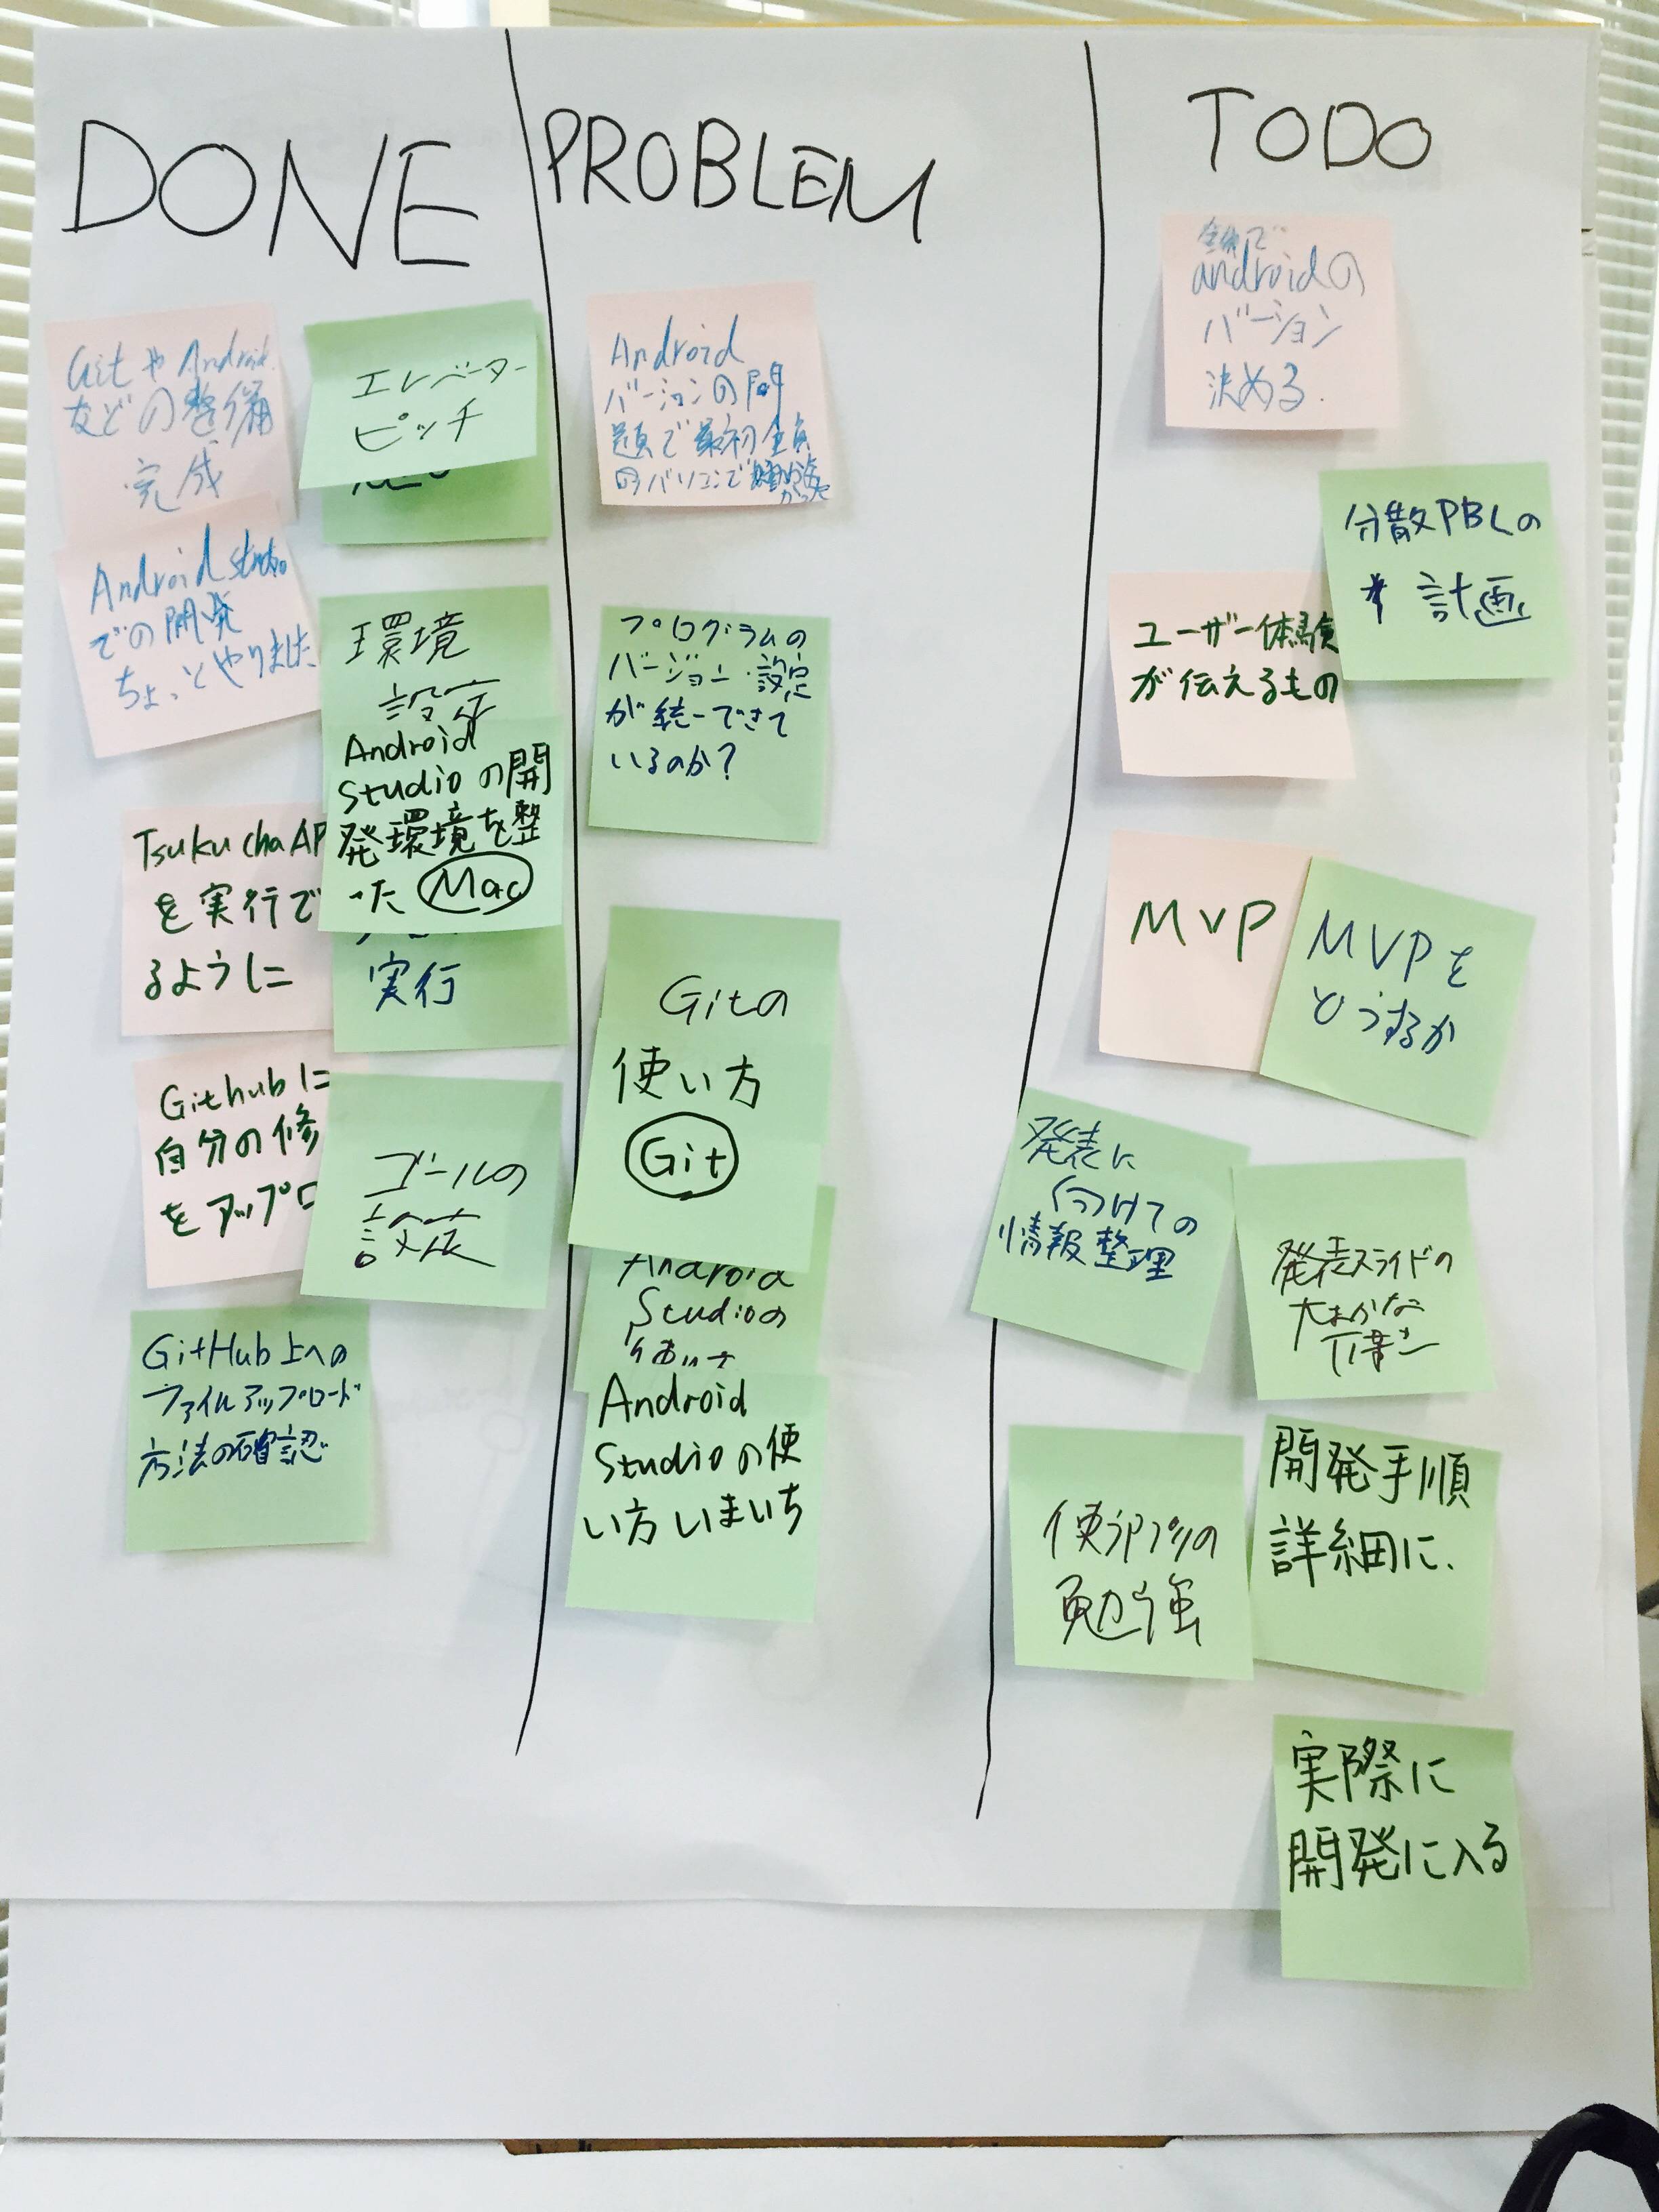 DONE
PROBLEM
TODO
GitやAndroid
などの整備
完成
エレベーター
ピッチ
Android studio
での開発
ちょっとやりました
環境
設定
Android
Studioの開
発環境を整
った Mac
実行
Tsukucha AP
を実行で
るように
Githubに
自分の修
をアップロ
ゴールの
設定
GitHub上への
ファイルアップロード
方法の確認
Android
バージョンの問
題で最初全員
のパソコンで
プログラムの
バージョン・設定
が統一できて
いるのか?
Gitの
使い方
Git
Android
Studioの
Android
Studioの使
い方いまいち
全体で
androidの
バージョン
決める.
分散PBLの
計画
ユーザー体験
が伝えるもの
MVP
MVPを
どうするか
発表に
向けての
情報整理
発表スライドの
大まかな
下書き
使うアプリの
勉強
開発手順
詳細に.
実際に
開発に入る